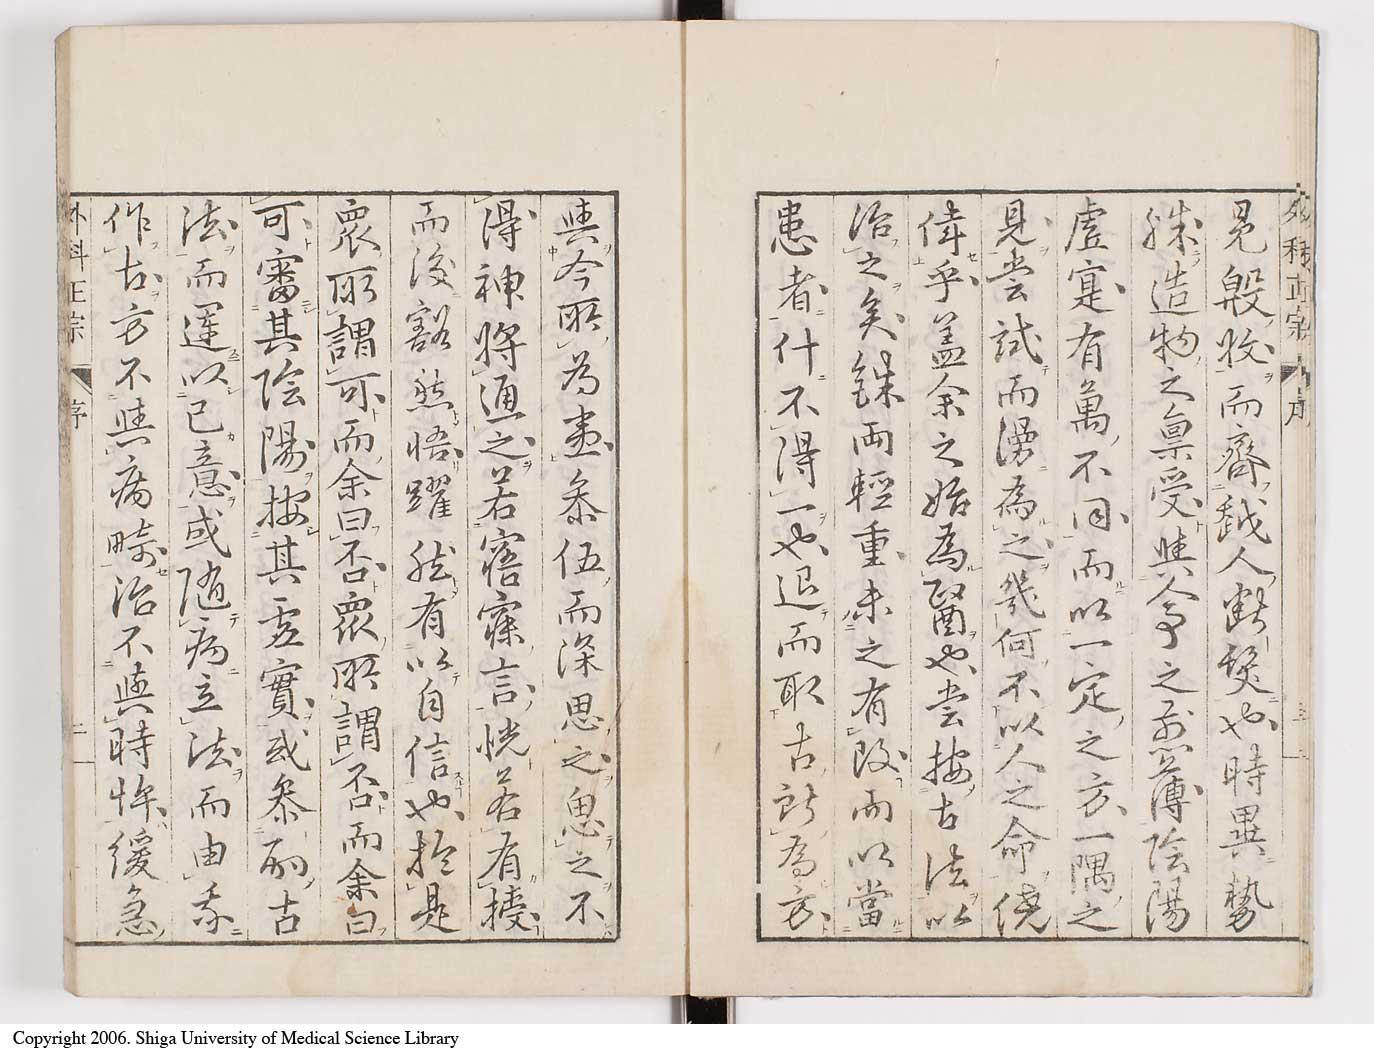 外科正宗 序
冕殷收而齊越人斷髮也時異勢
殊造物之稟受與人事之煎薄陰陽
虛寔有萬不同而以一定之方一隅之
見嘗試而漫為之幾何不以人之命僥
倖乎蓋余之始為醫也嘗按古法以
治之矣銖兩輕重未之有改而以當
患者什不得一也退而取古所為方
與今所為盡參伍而深思之思之不
得神將通之若寤寐言恍若有授
而後豁然悟躍然有以自信也於是
眾所謂可而余曰否眾所謂否而余曰
可審其陰陽按其虛實或參酌古
法而運以己意或隨病立法而由我
作古方不與病畸治不與時悖緩急
外科正宗 序 二
Copyright 2006. Shiga University of Medical Science Library